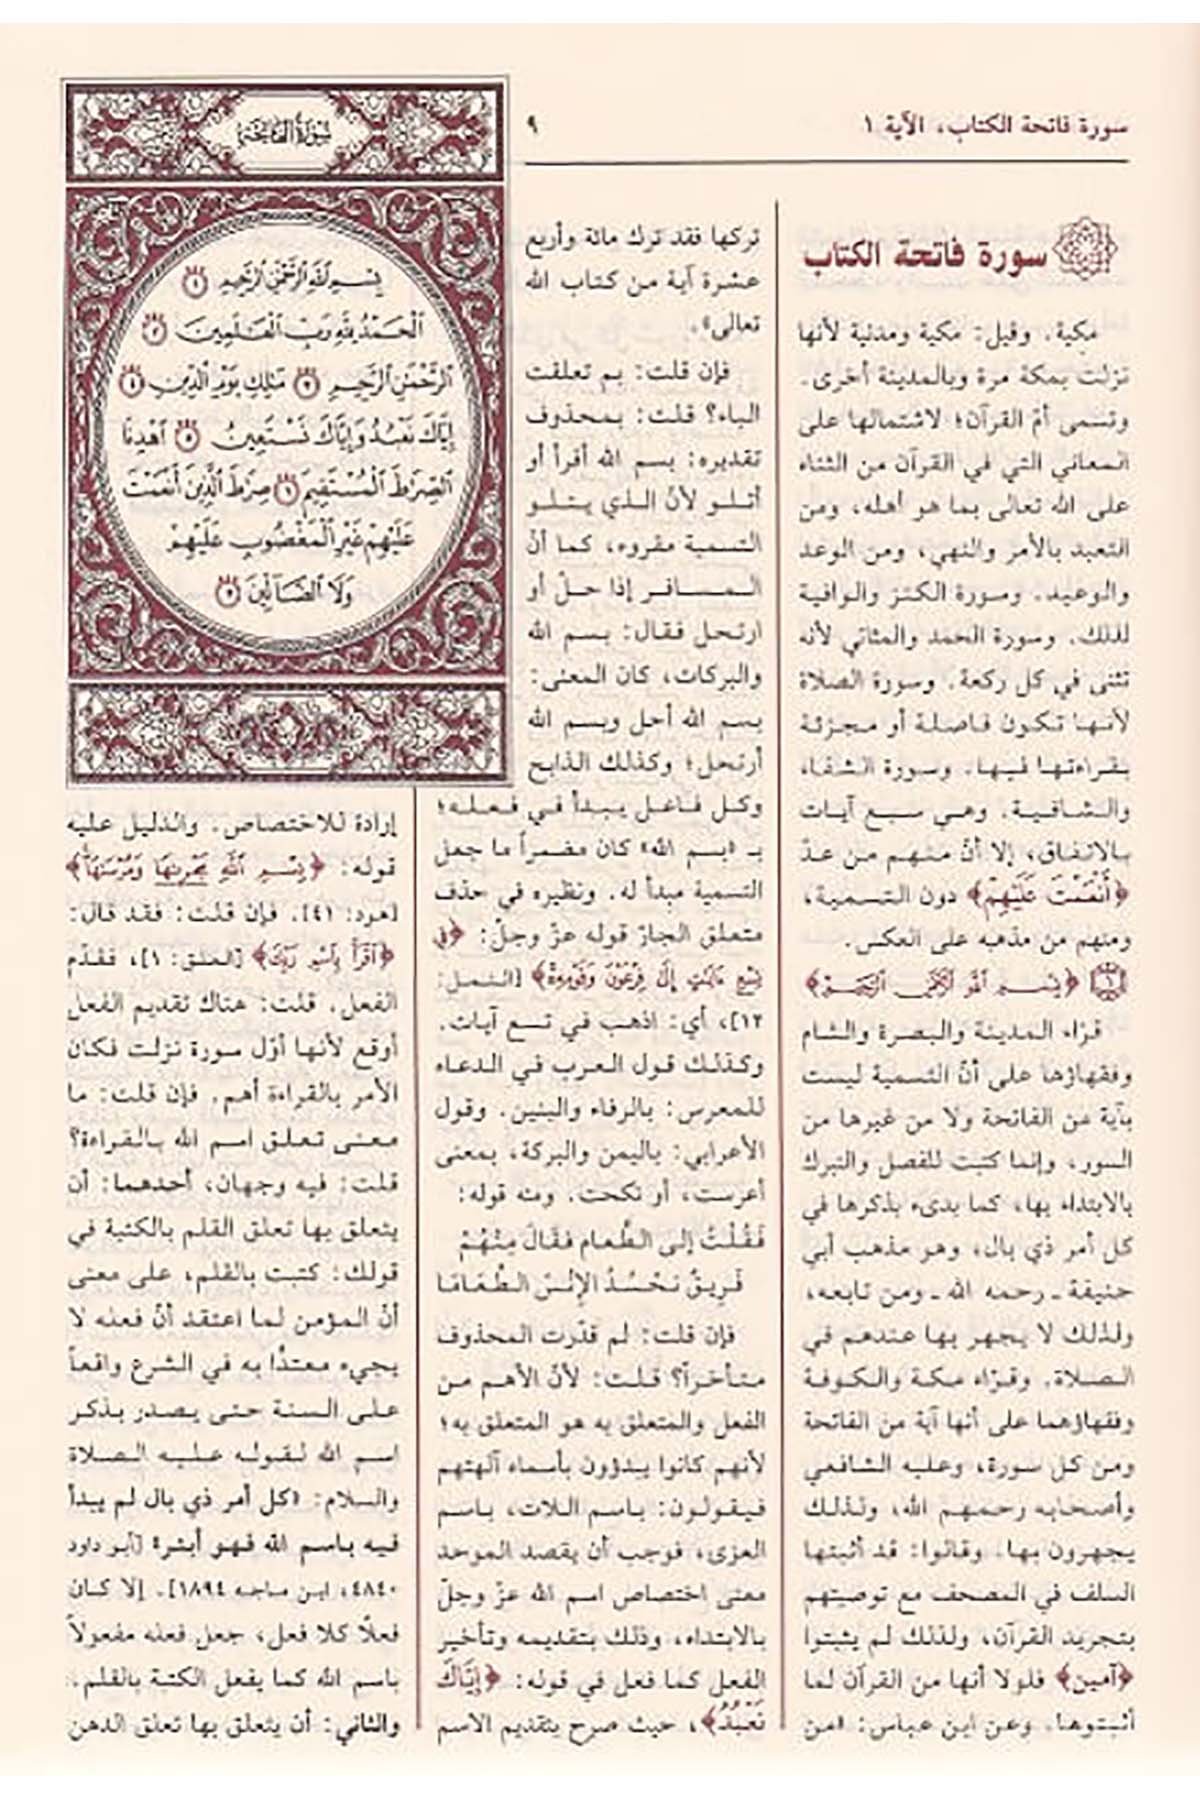 سورة فاتحة الكتاب، الآية ١
٩
سورة فاتحة الكتاب
مكية. وقيل: مكية ومدنية لأنها
نزلت بمكة مرة وبالمدينة أخرى.
وتسمى أمّ القرآن؛ لاشتمالها على
المعاني التي في القرآن من الثناء
على الله تعالى بما هو أهله، ومن
التعبد بالأمر والنهي، ومن الوعد
والوعيد. وسورة الكنز والوافية
لذلك. وسورة الحمد والمثاني لأنه
تثنى في كل ركعة. وسورة الصلاة
لأنها تكون فاصلة أو مجزئة
بقراءتها فيها. وسورة الشفاء
والشافية. وهي سبع آيات
بالاتفاق، إلا أنّ منهم من عدّ
﴿أَنْعَمْتَ عَلَيْهِمْ﴾ دون التسمية،
ومنهم من مذهبه على العكس.
١ ﴿بِسْمِ اللَّهِ الرَّحْمَٰنِ الرَّحِيمِ﴾
قرّاء المدينة والبصرة والشام
وفقهاؤها على أنّ التسمية ليست
بآية من الفاتحة ولا من غيرها من
السور، وإنما كتبت للفصل والتبرك
بالابتداء بها، كما بدىء بذكرها في
كل أمر ذي بال، وهو مذهب أبي
حنيفة ـ رحمه الله ـ ومن تابعه،
ولذلك لا يجهر بها عندهم في
الصلاة. وقرّاء مكة والكوفة
وفقهاؤهما على أنها آية من الفاتحة
ومن كل سورة، وعليه الشافعي
وأصحابه رحمهم الله، ولذلك
يجهرون بها. وقالوا: قد أثبتها
السلف في المصحف مع توصيتهم
بتجريد القرآن، ولذلك لم يثبتوا
﴿آمين﴾ فلولا أنها من القرآن لما
أثبتوها. وعن ابن عباس: «من
تركها فقد ترك مائة وأربع
عشرة آية من كتاب الله
تعالى».
فإن قلت: بم تعلقت
الباء؟ قلت: بمحذوف
تقديره: بسم الله أقرأ أو
أتلو لأنّ الذي يتلو
التسمية مقروء، كما أنّ
المسافر إذا حلّ أو
ارتحل فقال: بسم الله
والبركات، كان المعنى:
بسم الله أحل وبسم الله
أرتحل؛ وكذلك الذابح
وكل فاعل يبدأ في فعله؛
بـ «بسم الله» كان مضمراً ما جعل
التسمية مبدأ له. ونظيره في حذف
متعلق الجارّ قوله عزّ وجلّ: ﴿فِي
تِسْعِ ءَايَٰتٍ إِلَىٰ فِرْعَوْنَ وَقَوْمِهِ﴾ [النمل:
١٢]، أي: اذهب في تسع آيات.
وكذلك قول العرب في الدعاء
للمعرس: بالرفاء والبنين. وقول
الأعرابي: باليمن والبركة، بمعنى
أعرست، أو نكحت. ومنه قوله:
فَقُلْتُ إلى الطَّعام فقَالَ مِنْهُمْ
فَرِيقٌ نَحْسُدُ الإنْسَ الطَّعَامَا
فإن قلت: لم قدّرت المحذوف
متأخراً؟ قلت: لأنّ الأهم من
الفعل والمتعلق به هو المتعلق به؛
لأنهم كانوا يبدؤون بأسماء آلهتهم
فيقولون: باسم اللات، باسم
العزى، فوجب أن يقصد الموحد
معنى اختصاص اسم الله عزّ وجلّ
بالابتداء، وذلك بتقديمه وتأخير
الفعل كما فعل في قوله: ﴿إِيَّاكَ
نَعْبُدُ﴾، حيث صرح بتقديم الاسم
سُورَةُ الفَاتِحَة
بِسْمِ ٱللَّهِ ٱلرَّحْمَٰنِ ٱلرَّحِيمِ ١
ٱلْحَمْدُ لِلَّهِ رَبِّ ٱلْعَٰلَمِينَ ٢
ٱلرَّحْمَٰنِ ٱلرَّحِيمِ ٣ مَٰلِكِ يَوْمِ ٱلدِّينِ ٤
إِيَّاكَ نَعْبُدُ وَإِيَّاكَ نَسْتَعِينُ ٥ ٱهْدِنَا
ٱلصِّرَٰطَ ٱلْمُسْتَقِيمَ ٦ صِرَٰطَ ٱلَّذِينَ أَنْعَمْتَ
عَلَيْهِمْ غَيْرِ ٱلْمَغْضُوبِ عَلَيْهِمْ
وَلَا ٱلضَّآلِّينَ ٧
إرادة للاختصاص. والدليل عليه
قوله: ﴿بِسْمِ ٱللَّهِ مَجْر۪ىٰهَا وَمُرْسَىٰهَا﴾
[هود: ٤١]. فإن قلت: فقد قال:
﴿ٱقْرَأْ بِٱسْمِ رَبِّكَ﴾ [العلق: ١]، فقدّم
الفعل. قلت: هناك تقديم الفعل
أوقع لأنها أوّل سورة نزلت فكان
الأمر بالقراءة أهم. فإن قلت: ما
معنى تعلق اسم الله بالقراءة؟
قلت: فيه وجهان، أحدهما: أن
يتعلق بها تعلق القلم بالكتبة في
قولك: كتبت بالقلم، على معنى
أنّ المؤمن لما اعتقد أنّ فعله لا
يجيء معتدّا به في الشرع واقعاً
على السنة حتى يصدر بذكر
اسم الله لقوله عليه الصلاة
والسلام: «كل أمر ذي بال لم يبدأ
فيه باسم الله فهو أبتر» [أبو داود
٤٨٤٠، ابن ماجه ١٨٩٤]. إلا كان
فعلًا كلا فعل، جعل فعله مفعولاً
باسم الله كما يفعل الكتبة بالقلم.
والثاني: أن يتعلق بها تعلق الدهن